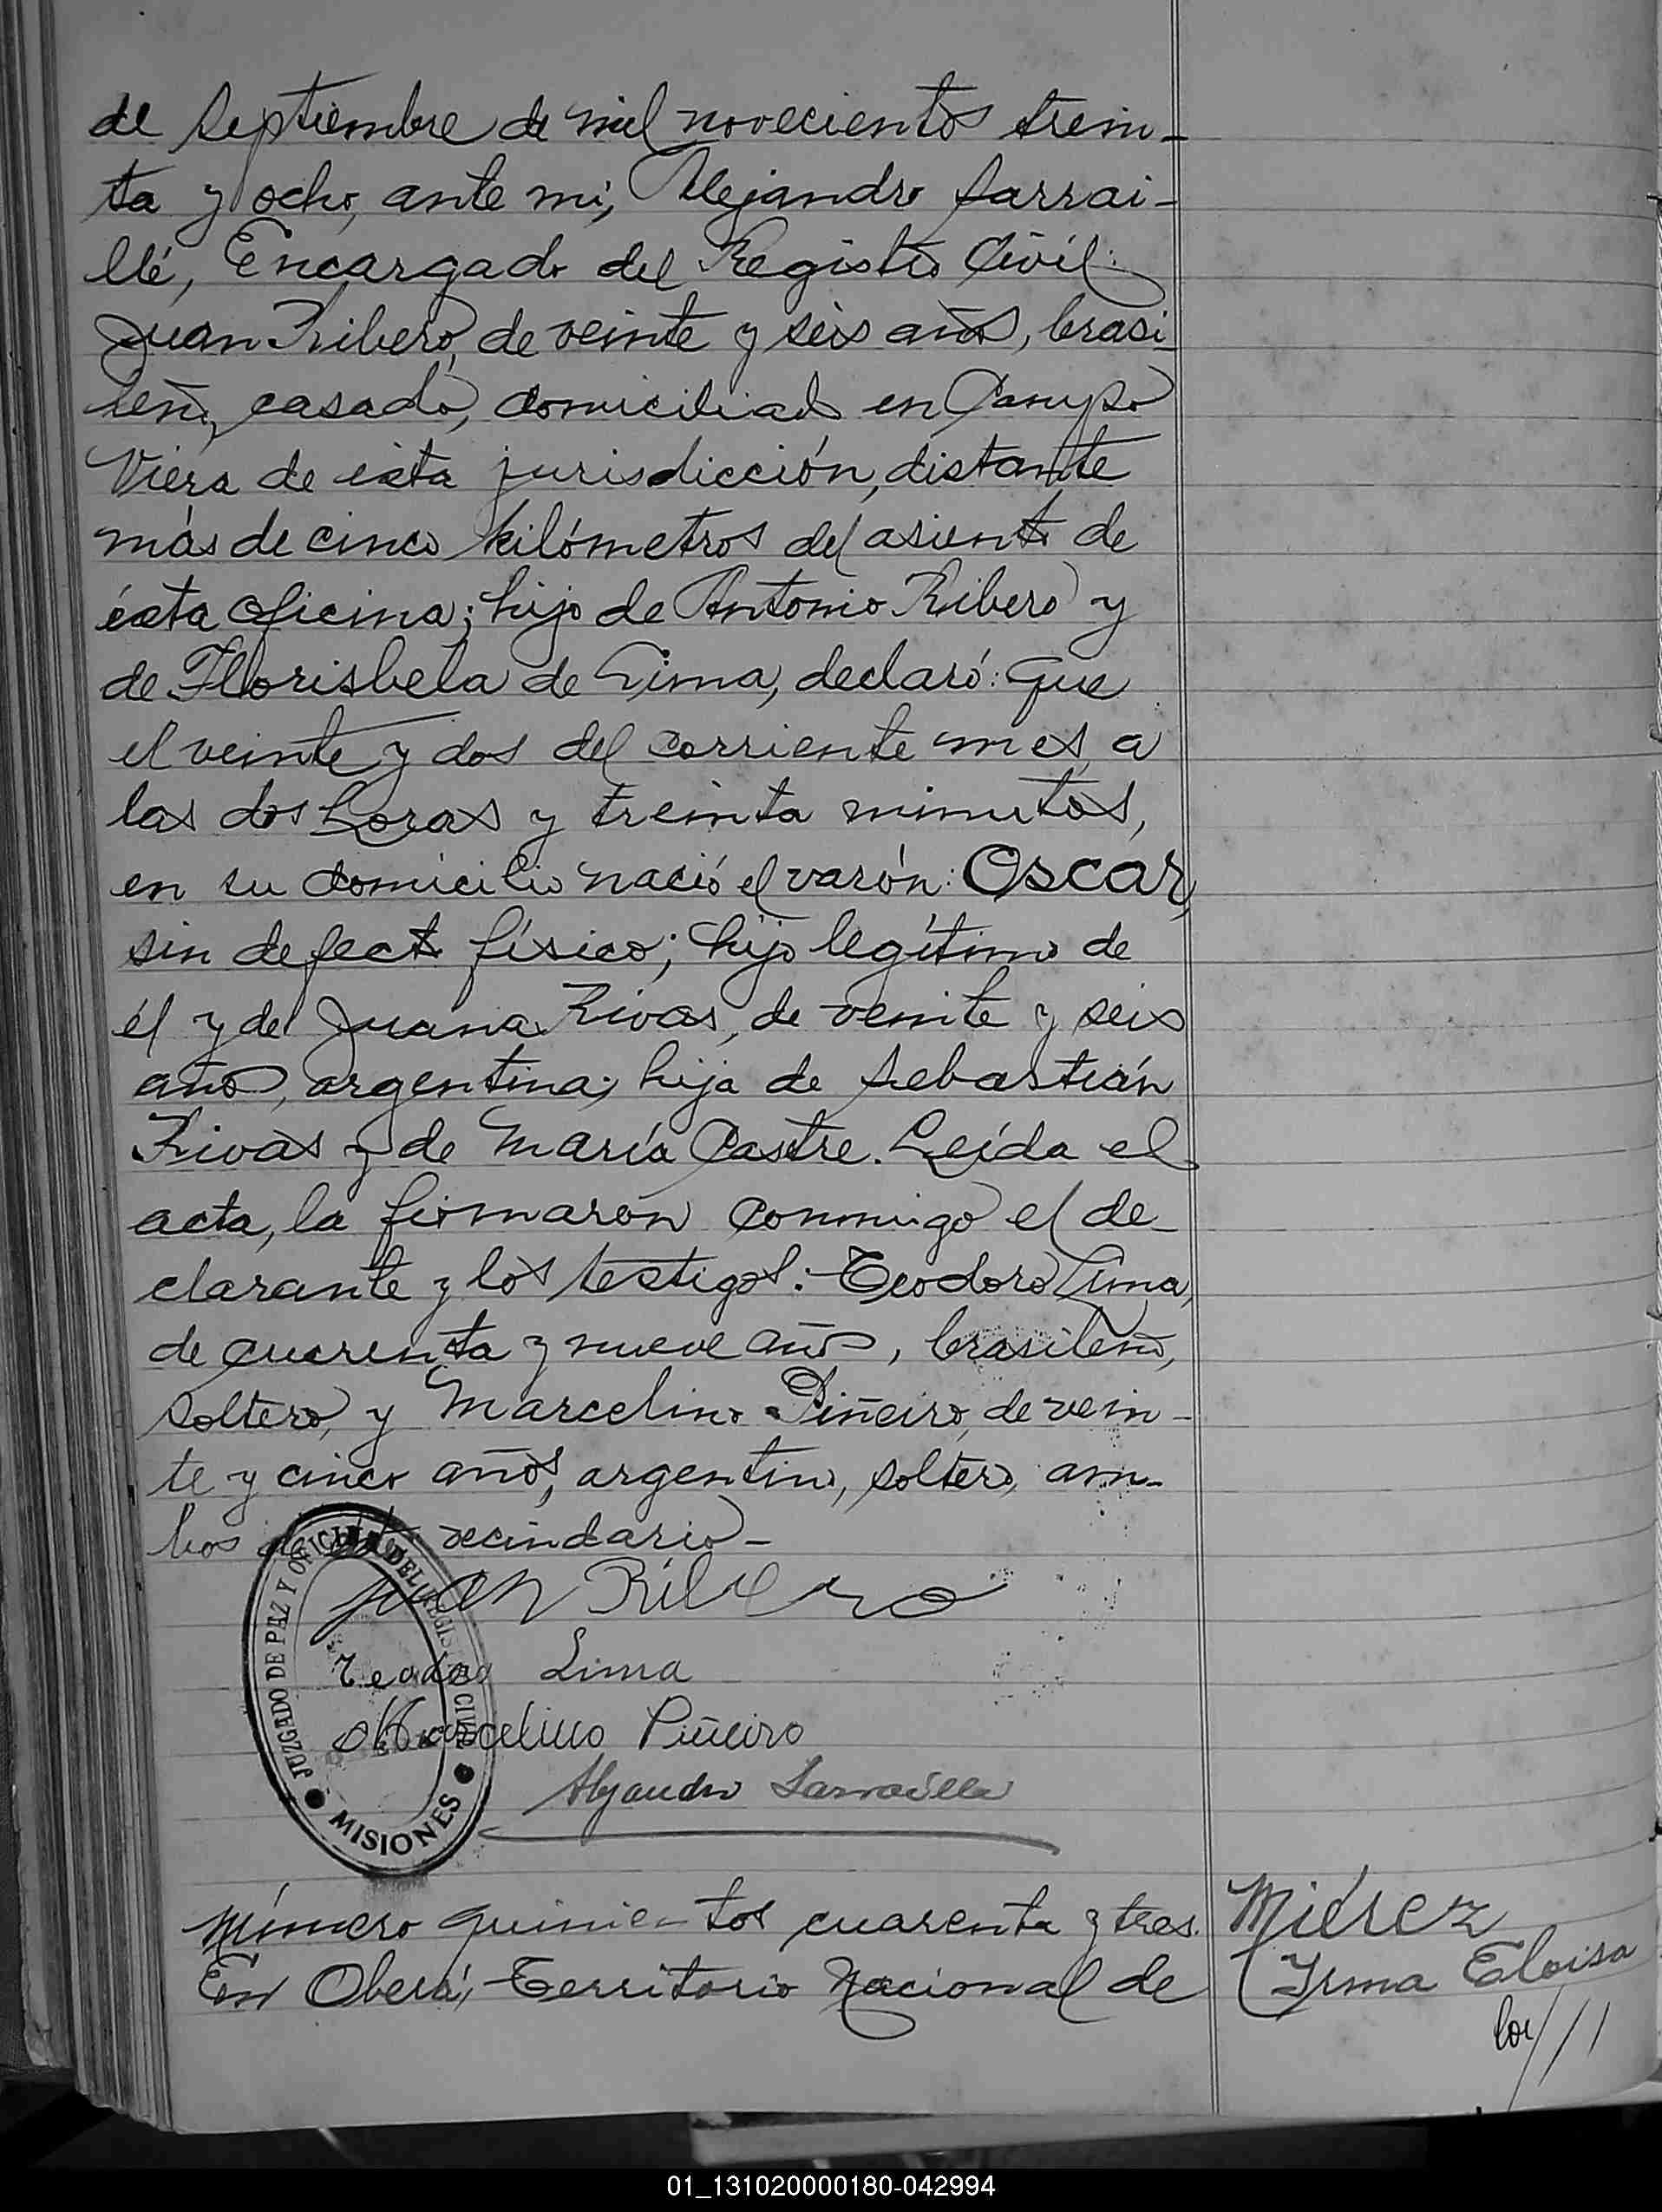 de Septiembre de mil novecientos trein-
ta y ocho, ante mí, Alejandro Sarrai-
llé, Encargado del Registro Civil:
Juan Ribero, de veinte y seis años, brasi-
leño, casado, domiciliado en Campo
Viera de esta jurisdicción, distante
más de cinco kilómetros del asiento de
ésta Oficina; hijo de Antonio Ribero y
de Florisbela de Lima, declaró: Que
el veinte y dos del corriente mes, a
las dos horas y treinta minutos,
en su domicilio nació el varón: Oscar,
sin defecto físico; hijo legítimo de
él y de Juana Rivas, de veinte y seis
años, argentina; hija de Sebastián
Rivas y de María Castre. Leída el
acta, la firmaron conmigo el de-
clarante y los testigos: Teodoro Lima,
de cuarenta y nueve años, brasileño,
soltero, y Marcelino Piñeiro, de vein-
te y cinco años, argentino, soltero, am-
bos de este vecindario-
Juan Ribero
Teodoro Lima
Marcelino Piñeiro
Alejandro Sarraillé
JUZGADO DE PAZ Y OFICINA DEL REGISTRO CIVIL
MISIONES
Número quinientos cuarenta y tres.
En Oberá, Territorio Nacional de
Miérez
Irma Eloisa
01_131020000180-042994